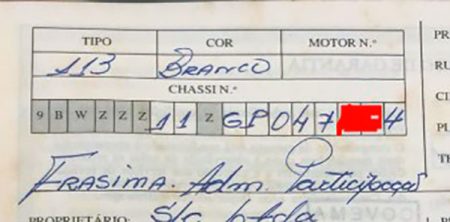 TIPO COR MOTOR N.º PR
113 BRANCO RU
CHASSI N.º CI
9 B W Z Z Z 1 1 Z G P 0 4 7 4 PL
FRASIMA. Adm. Participaçao TE
PROPRIETÁRIO: S/c Ltda